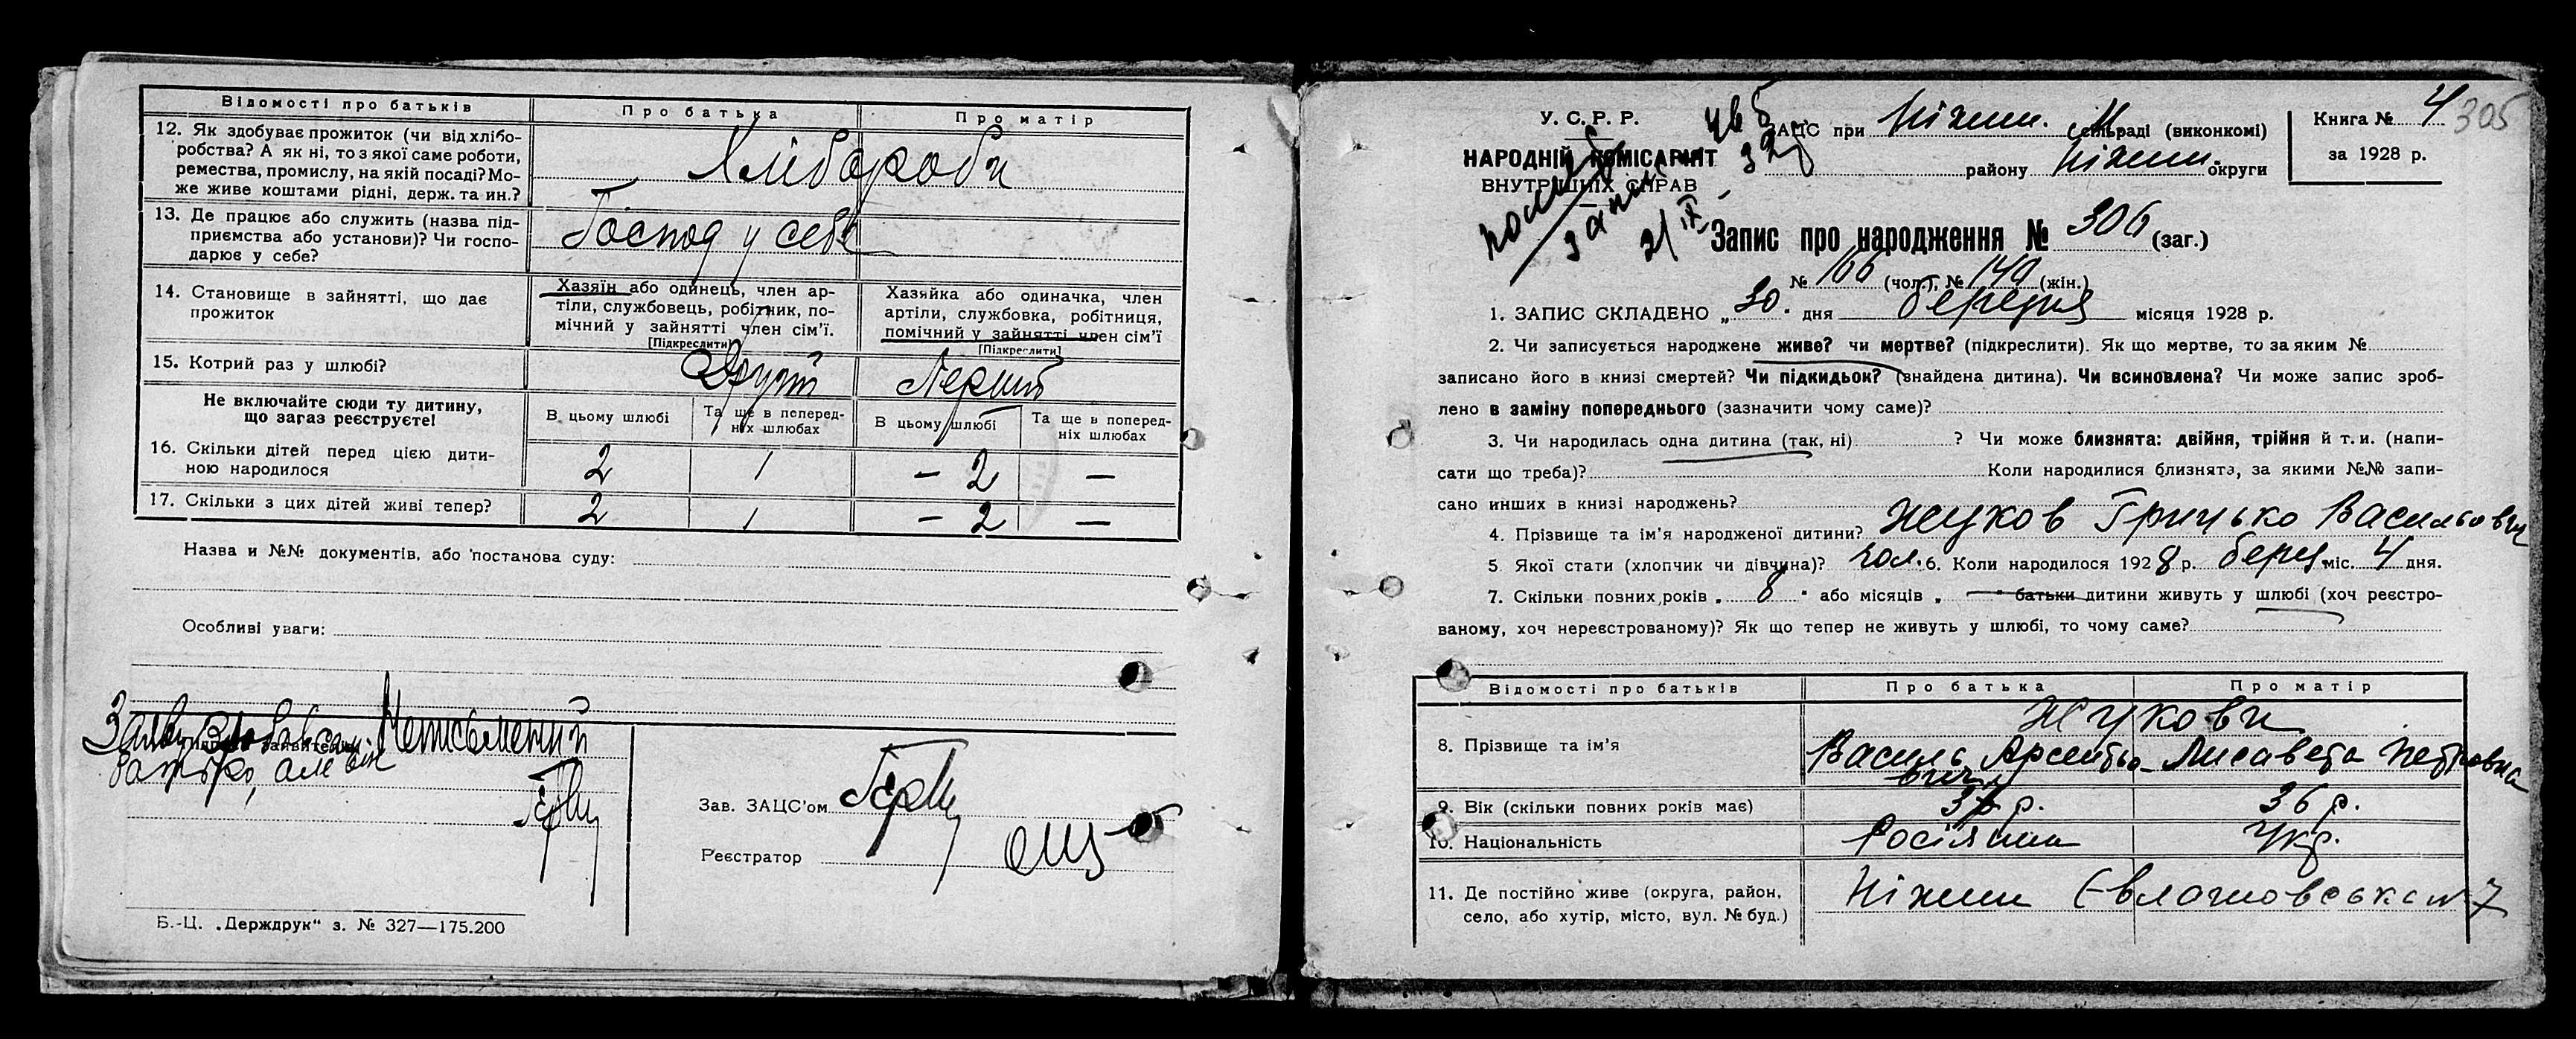 Відомості про батьків Про батька Про матір
12. Як здобуває прожиток (чи від хлібо-
робства? А як ні, то з якої саме роботи,
ремества, промислу, на якій посаді? Мо-
же живе коштами рідні, держ. та ин.?
Хлібороби
13. Де працює або служить (назва під-
приємства або установи)? Чи госпо-
дарює у себе?
Господ у себе
14. Становище в зайнятті, що дає
прожиток
Хазяїн або одинець, член ар-
тіли, службовець, робітник, по-
мічний у зайнятті член сім'ї.
[Підкреслити]
Хазяйка або одиначка, член
артіли, службовка, робітниця,
помічний у зайнятті член сім'ї
[Підкреслити]
15. Котрий раз у шлюбі? Другий Перший
Не включайте сюди ту дитину,
що загаз реєструєте!
В цьому шлюбі
Та ще в поперед-
ніх шлюбах
В цьому шлюбі
Та ще в поперед-
ніх шлюбах
16. Скільки дітей перед цією дити-
ною народилося
2 1 – 2 —
17. Скільки з цих дітей живі тепер? 2 1 – 2 —
Назва и №№ документів, або постанова суду:
Особливі уваги:
Неписьменний
батько, але він
Зав. ЗАЦС'ом
Реєстратор
Б.-Ц. „Держдрук“ з. № 327—175.200
У. С. Р. Р.
НАРОДНІЙ КОМІСАРІЯТ
ВНУТРІШНІХ СПРАВ
21/IX
ЗАЦС при Ніжин. М сільраді (виконкомі)
району Ніжин. округи
Книга № 4
за 1928 р.
305
Запис про народження № 306 (заг.)
№ 166 (чол.), № 140 (жін.)
1. ЗАПИС СКЛАДЕНО „30.“ дня березня місяця 1928 р.
2. Чи записується народжене живе? чи мертве? (підкреслити). Як що мертве, то за яким №
записано його в книзі смертей? Чи підкидьок? (знайдена дитина). Чи всиновлена? Чи може запис зроб-
лено в заміну попереднього (зазначити чому саме)?
3. Чи народилась одна дитина (так, ні) ? Чи може близнята: двійня, трійня й т. и. (напи-
сати що треба)? Коли народилися близнята, за якими №№ запи-
сано инших в книзі народжень?
4. Прізвище та ім'я народженої дитини? Жуков Грицько Васильович
5 Якої стати (хлопчик чи дівчина)? чол. 6. Коли народилося 1928 р. берез. міс. 4 дня.
7. Скільки повних років „ 8 “ або місяців „ — “ батьки дитини живуть у шлюбі (хоч реєстро-
ваному, хоч нереєстрованому)? Як що тепер не живуть у шлюбі, то чому саме?
Відомості про батьків Про батька Про матір
8. Прізвище та ім'я
Жукови
Василь Арсентьо- Лисавета Петровна
вич
9. Вік (скільки повних років має) 36 р.
10. Національність Росіянин Укр.
11. Де постійно живе (округа, район,
село, або хутір, місто, вул. № буд.)
Ніжин Євлашовська № 7